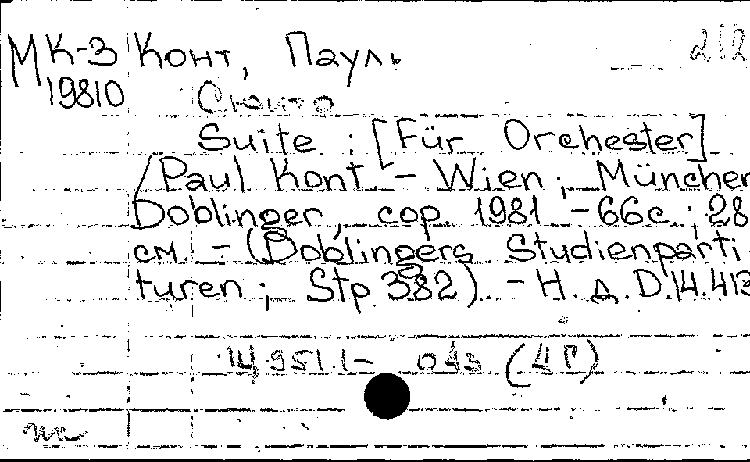 МК-3 Конт, Пауль 212
19810 Сюита
Suite : [Für Orchester]
/Paul Kont - Wien ; München
Doblinger, cop. 1981 - 66с ; 28
см. - (Doblingers Studienparti
turen ; Stp 382). - Н. д. D.14.413